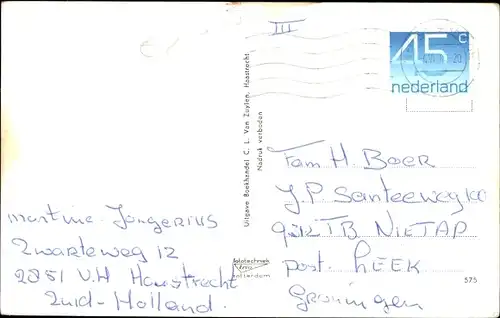 III
45 c
nederland
Uitgave Boekhandel C. L. Van Zuylen, Haastrecht
Nadruk verboden
Fam H. Boer
J.P. Santeeweg 100
9312 TB NIETAP
post. LEEK
Groningen
martine Jongerius
Zwarteweg 12
2851 V.H Haastrecht
Zuid-Holland.
575